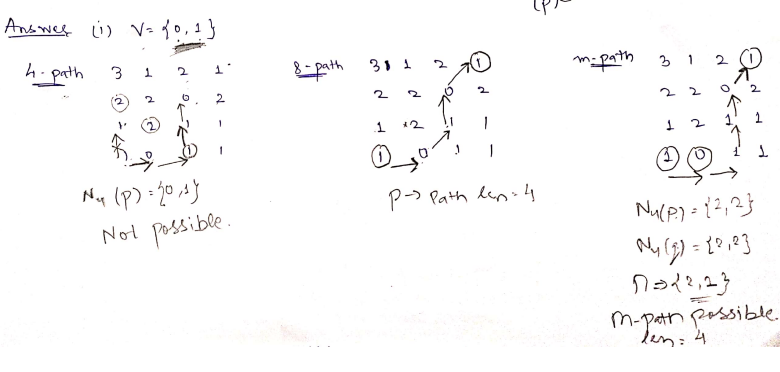 Answer (i) V = {0, 1}
4-path
3 1 2 1
2 2 0 2
1 2 1 1
1 0 1 1
N4 (p) = {0, 1}
Not possible.
8-path
3 1 1 2 1
2 2 0 2
1 2 1 1
1 0 1 1
p → Path len = 4
m-path
3 1 2 1
2 2 0 2
1 2 1 1
1 0 1 1
N4(p) = {2, 2}
N4(q) = {2, 2}
∩ ⇒ {2, 2}
m-path possible.
len = 4